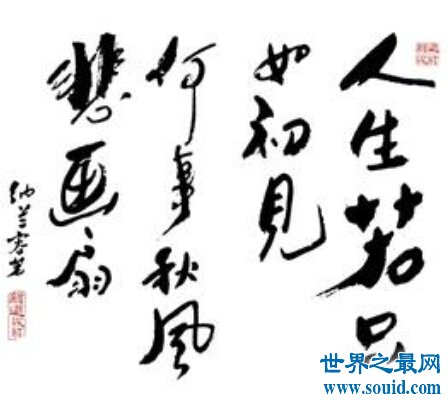 人生若只
如初見
何事秋风
悲画扇
纳兰容若
世界之最网
www.souid.com